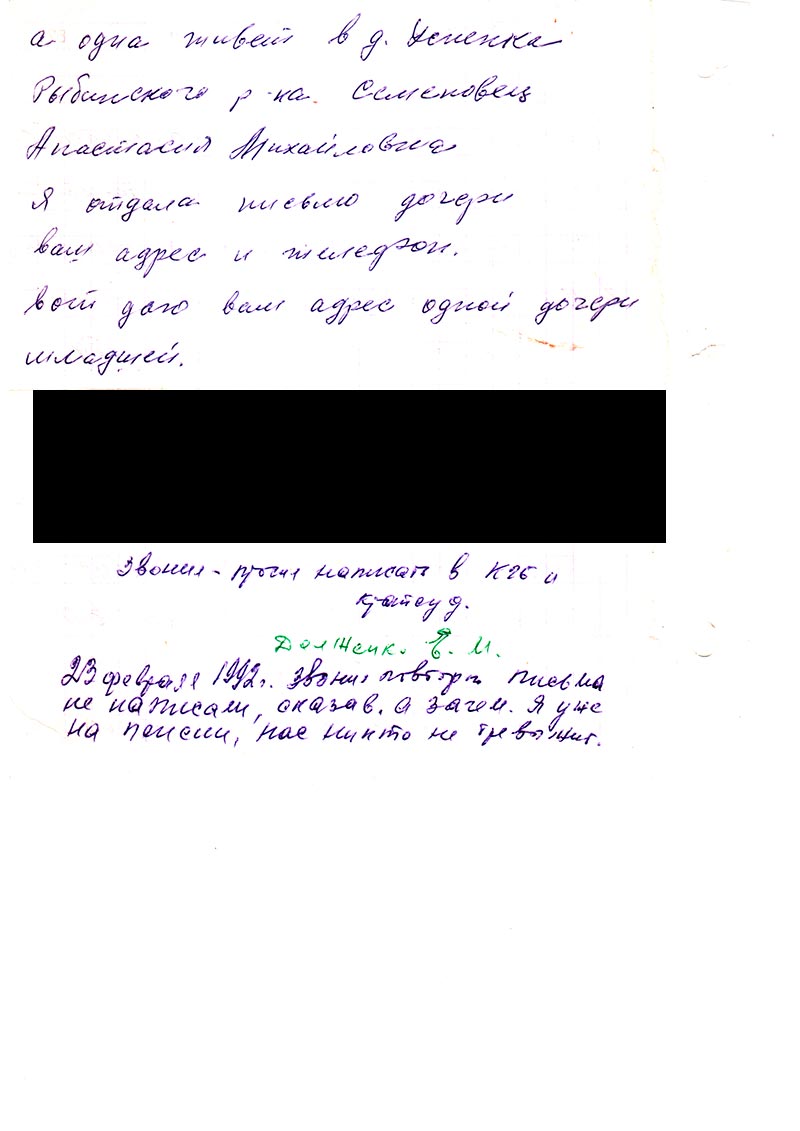 а одна живет в д. Успенка
Рыбинского р-на. Семеновец
Анастасия Михайловна
Я отдала письмо дочери
ваш адрес и телефон.
вот даю вам адрес одной дочери
младшей.
Звонил - просил написать в КГБ и
крайсуд.
Долженк. Е. И.
23 февраля 1992 г. Звонил повторн письма
не написали, сказав. а зачем. Я уже
на пенсии, нас никто не тревожит.